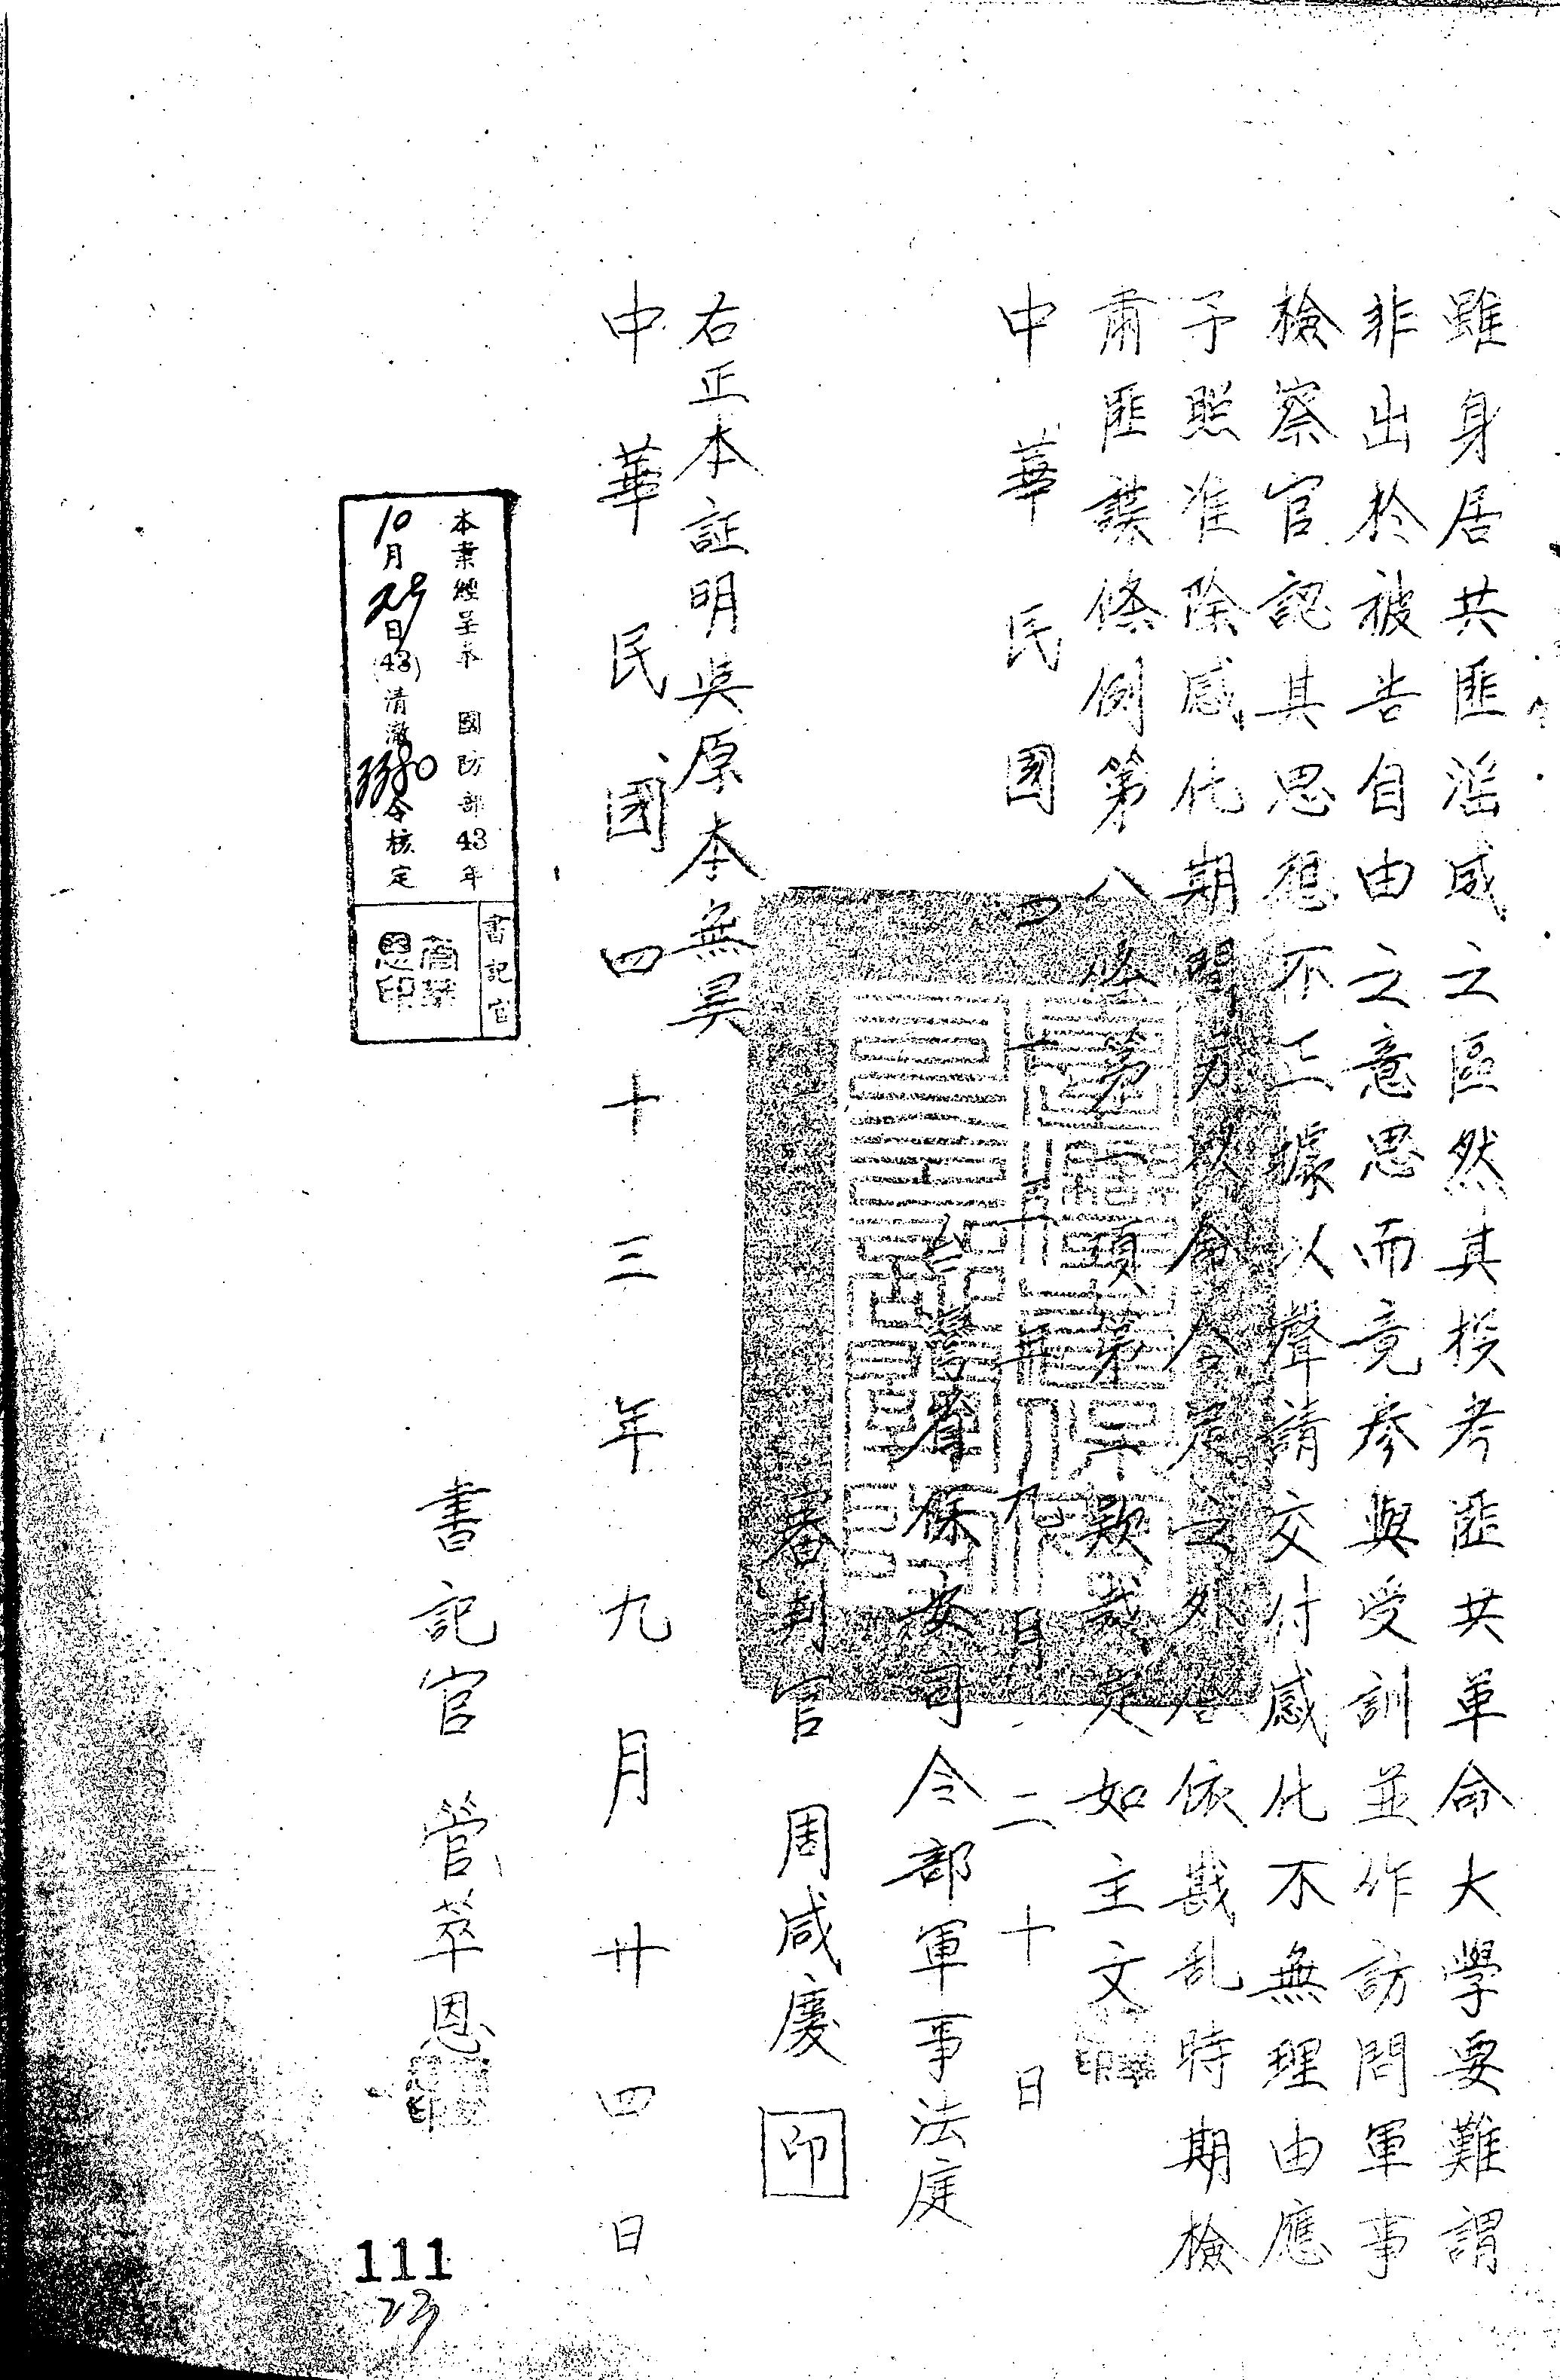 雖身居共匪淪陷之區然其投考匪共革命大學要難謂
非出於被告自由之意思而竟參與受訓並作訪問軍事
檢察官認其思想不正據以聲請交付感化不無理由應
予照准除感化期間另以命令定之外合依戡乱時期檢
肅匪諜條例第八條第一項第 款裁定如主文
中華民國四十三年九月二十日
台灣省保安司令部軍事法庭
審判官 周咸慶 印
右正本証明與原本無異
中華民國四十三年九月廿四日
書記官 管萃恩
本案經呈奉 國防部43年
10月29日(43)清澈3380令核定
書記官
111